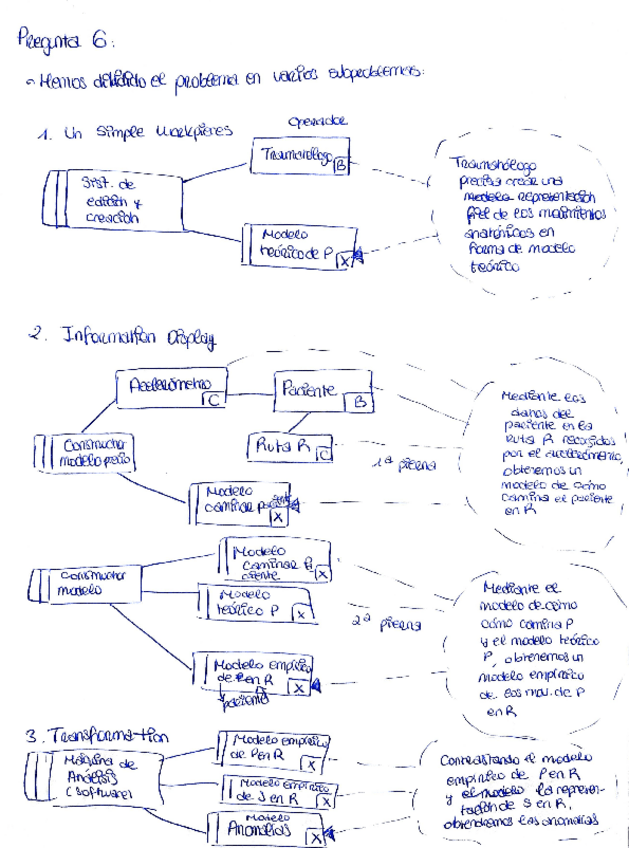 Pregunta 6:
Hemos dividido el problema en varios subproblemas:
1. Un Simple Workpieces
Operador
Traumatólogo
B
Sist. de
edición y
creación
Modelo
teórico de P
X
Traumatólogo
precisa crear una
modelo representación
fiel de los movimientos
anatómicos en
forma de modelo
teórico
2. Information Display
Acelerómetro
C
Paciente
B
Constructor
modelo
Ruta R
C
1ª pierna
Modelo
caminar paciente
X
Mediante los
datos del
paciente en la
Ruta R recogidos
por el acelerómetro,
obtenemos un
modelo de cómo
camina el paciente
en R
Constructor
modelo
Modelo
caminar
X
Modelo
teórico P
X
2ª pierna
Modelo empírico
de P en R
X
paciente
Mediante el
modelo de cómo
cómo camina P
y el modelo teórico
P, obtenemos un
modelo empírico
de los mov. de P
en R
3. Transformation
Máquina de
Análisis
(software)
Modelo empírico
de P en R
X
Modelo empírico
de S en R
X
Modelo
Anomalías
X
Contrastando el modelo
empírico de P en R
y el modelo la represen-
tación de S en R,
obtendremos las anomalías